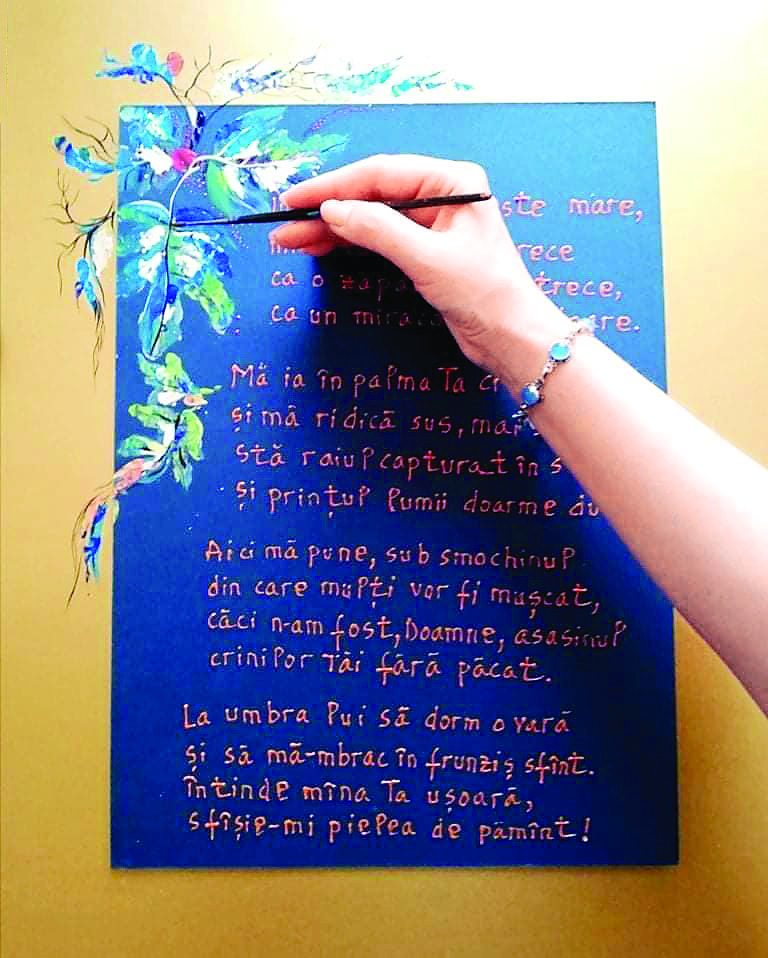 mare,
rece
ca o trece,
ca un
Mă ia în palma Ta
și mă ridică sus,
stă raiul capturat în
și prințul lumii doarme
Aici mă pune, sub smochinul
din care mulți vor fi mușcat,
căci n-am fost, Doamne, asasinul
crinilor Tăi fără păcat.
La umbra lui să dorm o vară
și să mă-mbrac în frunziș sfînt.
Întinde mîna Ta ușoară,
sfîșie-mi pielea de pămînt!